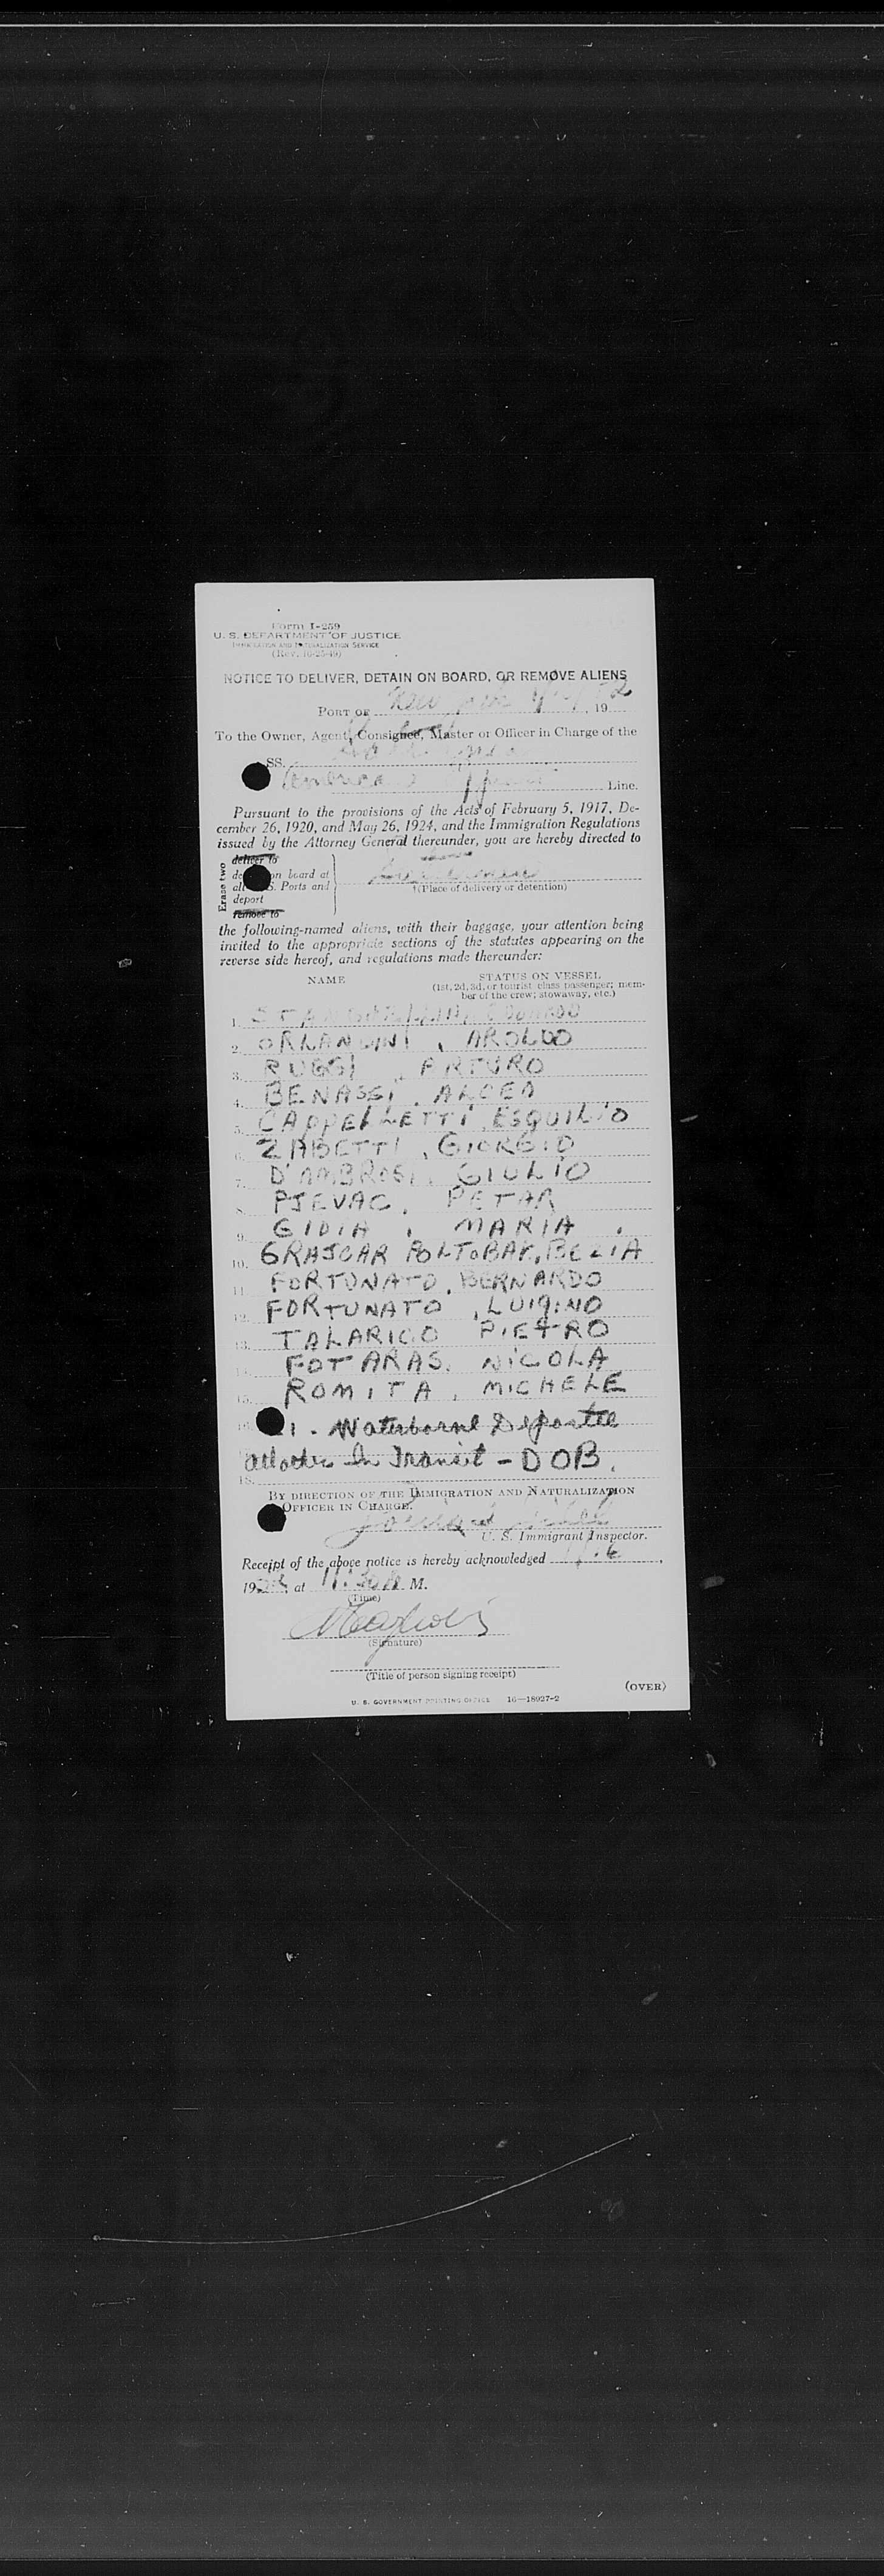 Form I-259
U. S. DEPARTMENT OF JUSTICE
IMMIGRATION AND NATURALIZATION SERVICE
(Rev. 10-25-49)
NOTICE TO DELIVER, DETAIN ON BOARD, OR REMOVE ALIENS
PORT OF New York , 19 52
To the Owner, Agent, Consignee, Master or Officer in Charge of the
SS.
American Line.
Pursuant to the provisions of the Acts of February 5, 1917, De-
cember 26, 1920, and May 26, 1924, and the Immigration Regulations
issued by the Attorney General thereunder, you are hereby directed to
Erase two
deliver to
on board at
S. Ports and
deport
remove to
(Place of delivery or detention)
the following-named aliens, with their baggage, your attention being
invited to the appropriate sections of the statutes appearing on the
reverse side hereof, and regulations made thereunder:
NAME STATUS ON VESSEL
(1st, 2d, 3d, or tourist class passenger; mem-
ber of the crew; stowaway, etc.)
1.
2. ORLANDINI , AROLDO
3. RUGGI , ARTURO
4. BENASSI . ALCEO
5. CAPPELLETTI , ESQUILIO
6. ZABETTI , GIORGIO
7. D'AMBROSI , GIULIO
8. PJEVAC , PETAR
9. GIDIA , MARIA .
10. GRAJCAR POLTOBAK, BEZIA
11. FORTUNATO , BERNARDO
12. FORTUNATO , LUIGINO
13. TALARICO PIETRO
14. FOTARAS , NICOLA
15. ROMITA , MICHELE
1 . Waterborne Deportee
all other In Transit - DOB.
18.
BY DIRECTION OF THE IMMIGRATION AND NATURALIZATION
OFFICER IN CHARGE.
U. S. Immigrant Inspector.
Receipt of the above notice is hereby acknowledged ,
19 , at M.
(Time)
(Signature)
(Title of person signing receipt)
(OVER)
U. S. GOVERNMENT PRINTING OFFICE 16—18927-2